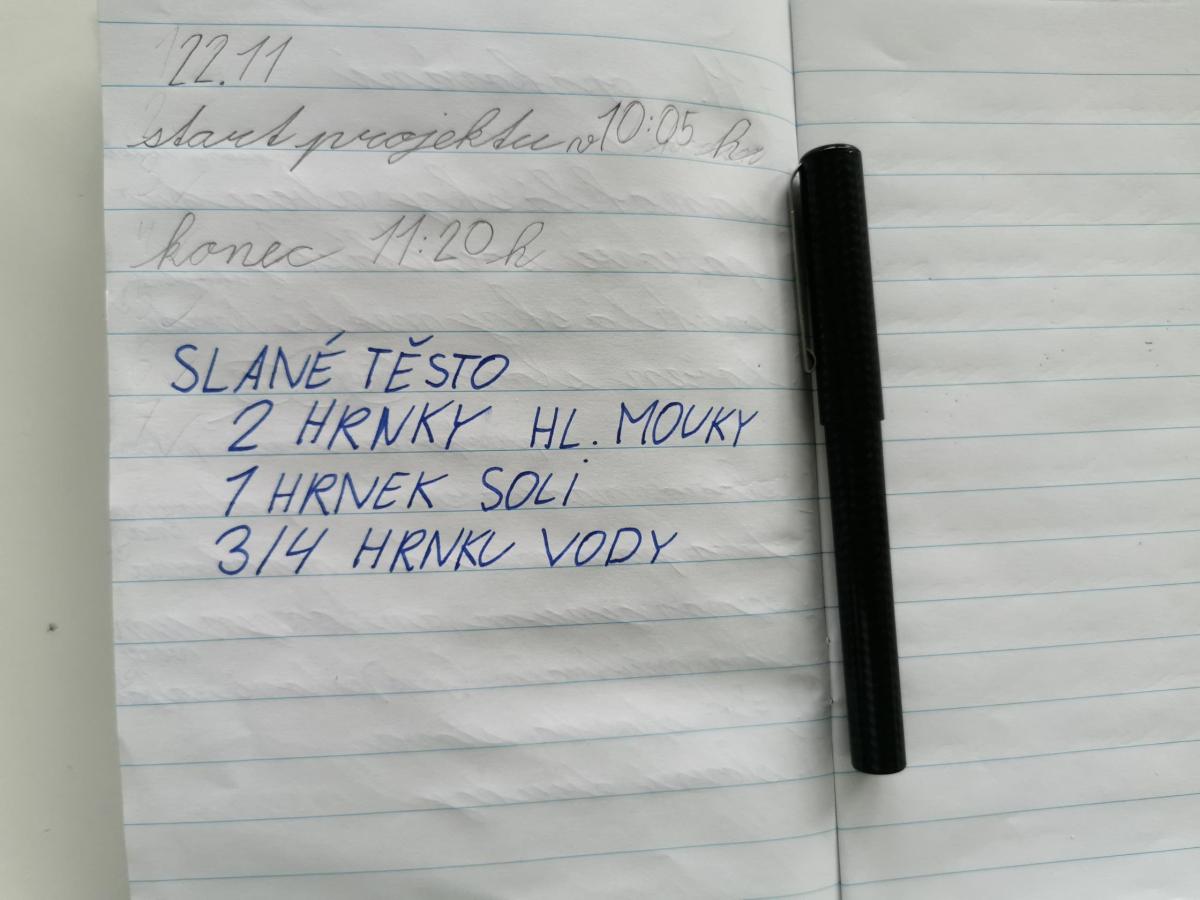 22.11
start projektu v 10:05 h
konec 11:20 h
SLANÉ TĚSTO
2 HRNKY HL. MOUKY
1 HRNEK SOLI
3/4 HRNKU VODY